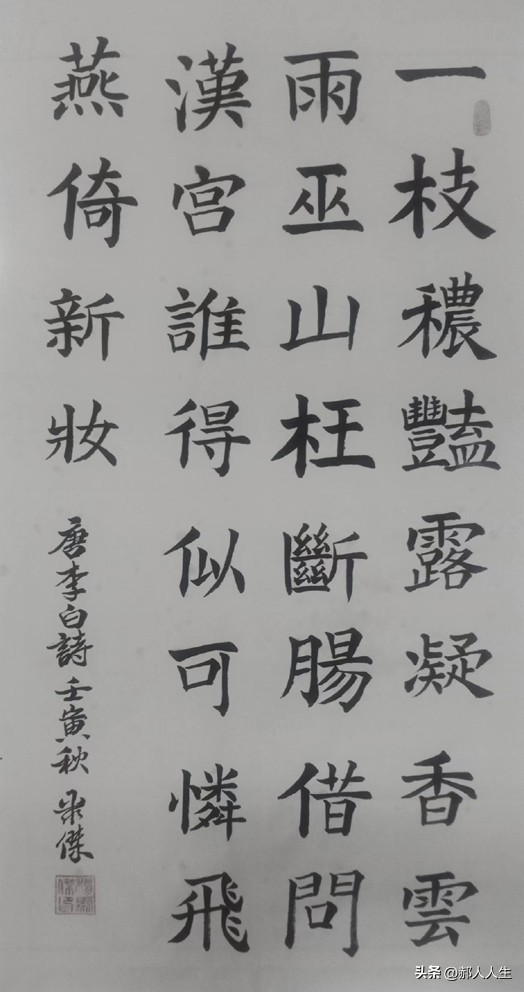 一枝穠豔露凝香雲
雨巫山枉斷腸借問
漢宮誰得似可憐飛
燕倚新妝
唐李白詩 壬寅秋 傑
头条 @郝人人生